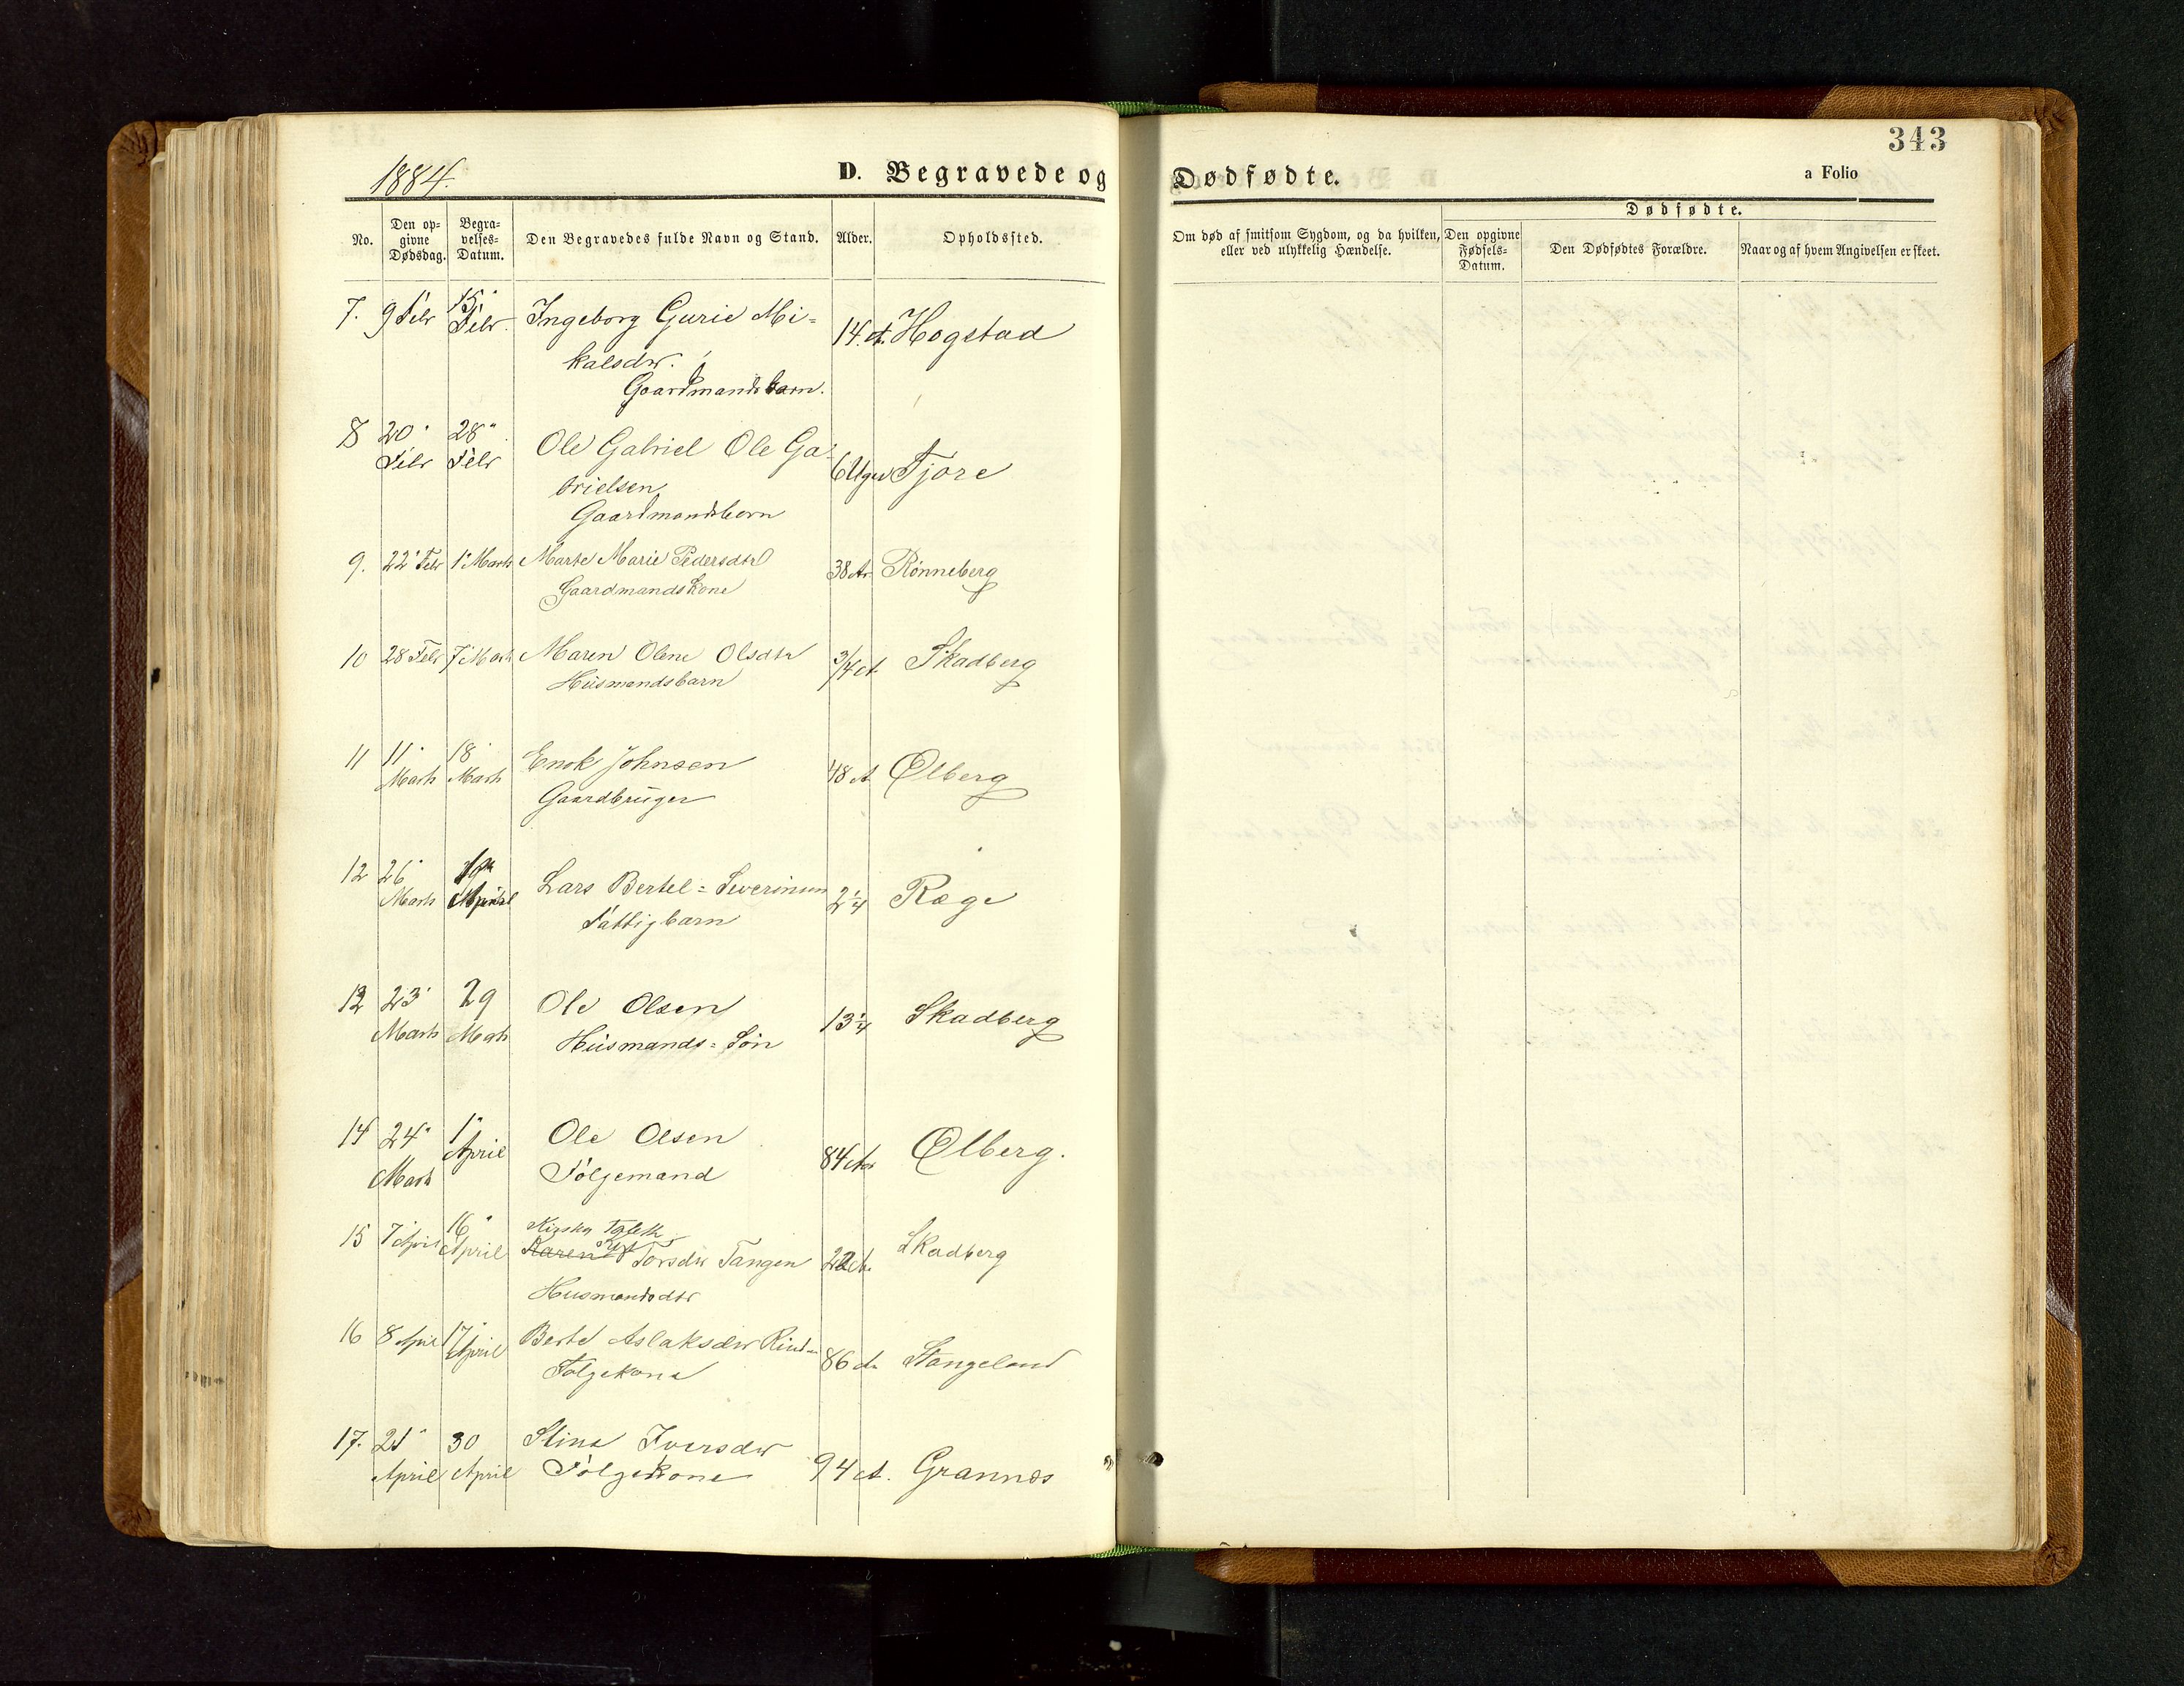 343
1884.
D. Begravede og Dødfødte.
a Folio
No. Den opgivne Dødsdag. Begravelses-Datum. Den Begravedes fulde Navn og Stand. Alder. Opholdssted.
Om død af smitsom Sygdom, og da hvilken, eller ved ulykkelig Hændelse.
Dødfødte.
Den opgivne Fødsels-Datum. Den Dødfødtes Forældre. Naar og af hvem Angivelsen er skeet.
7. 9 Febr 15 Febr. Ingeborg Gurie Mi=
kalsdtr. 14 A. Hogstad
Gaardmandsbarn.
8 20 Febr 28 Febr Ole Gabriel Ole Ga=
brielsen 6 Uger Tjore
Gaardmandsbarn
9. 22 Febr 1 Marts Marte Marie Pedersdtr 38 Ar Rönneberg
Gaardmandskone
10 28 Febr 7 Marts Maren Oline Olsdtr 3/4 A. Skadberg
Húsmandsbarn
11 11 Marts 18 Marts Enok Johnsen 48 A Ølberg
Gaardbrúger
12 26 Marts April Lars Bertel= Severinsen 2 1/4 Ræge
Fattigbarn
13 23 Marts 29 Marts Ole Olsen 13 1/4 Skadberg
Húsmands= Sön
14 24 Marts 1 April Ole Olsen 84 Aar Ølberg.
Fölgemand
15 7 April 16 April Karen Torsdtr Tangen 22 A. Skadberg
Husmandsdtr
16 8 April 17 April Berte Aslaksdtr 86 A. Stangeland
Fölgekone
17. 21 April 30 April Stina Iversdtr
Fölgekone 94 A. Grannes